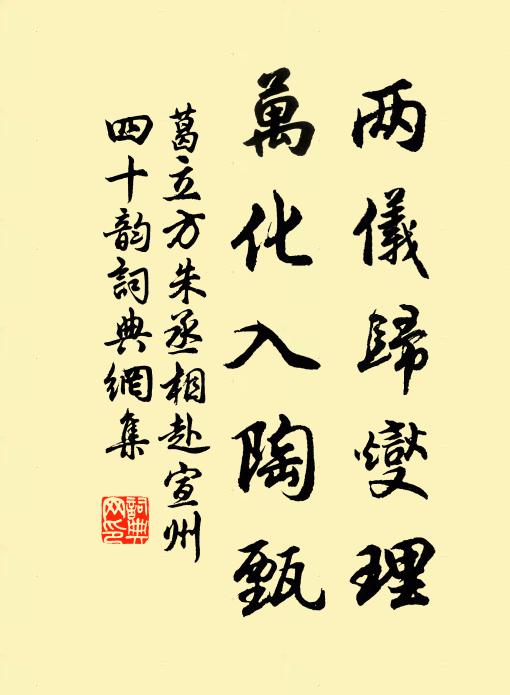 两儀歸燮理
萬化入陶甄
葛立方朱丞相赴宣州
四十韵詞典網集
詞典网印